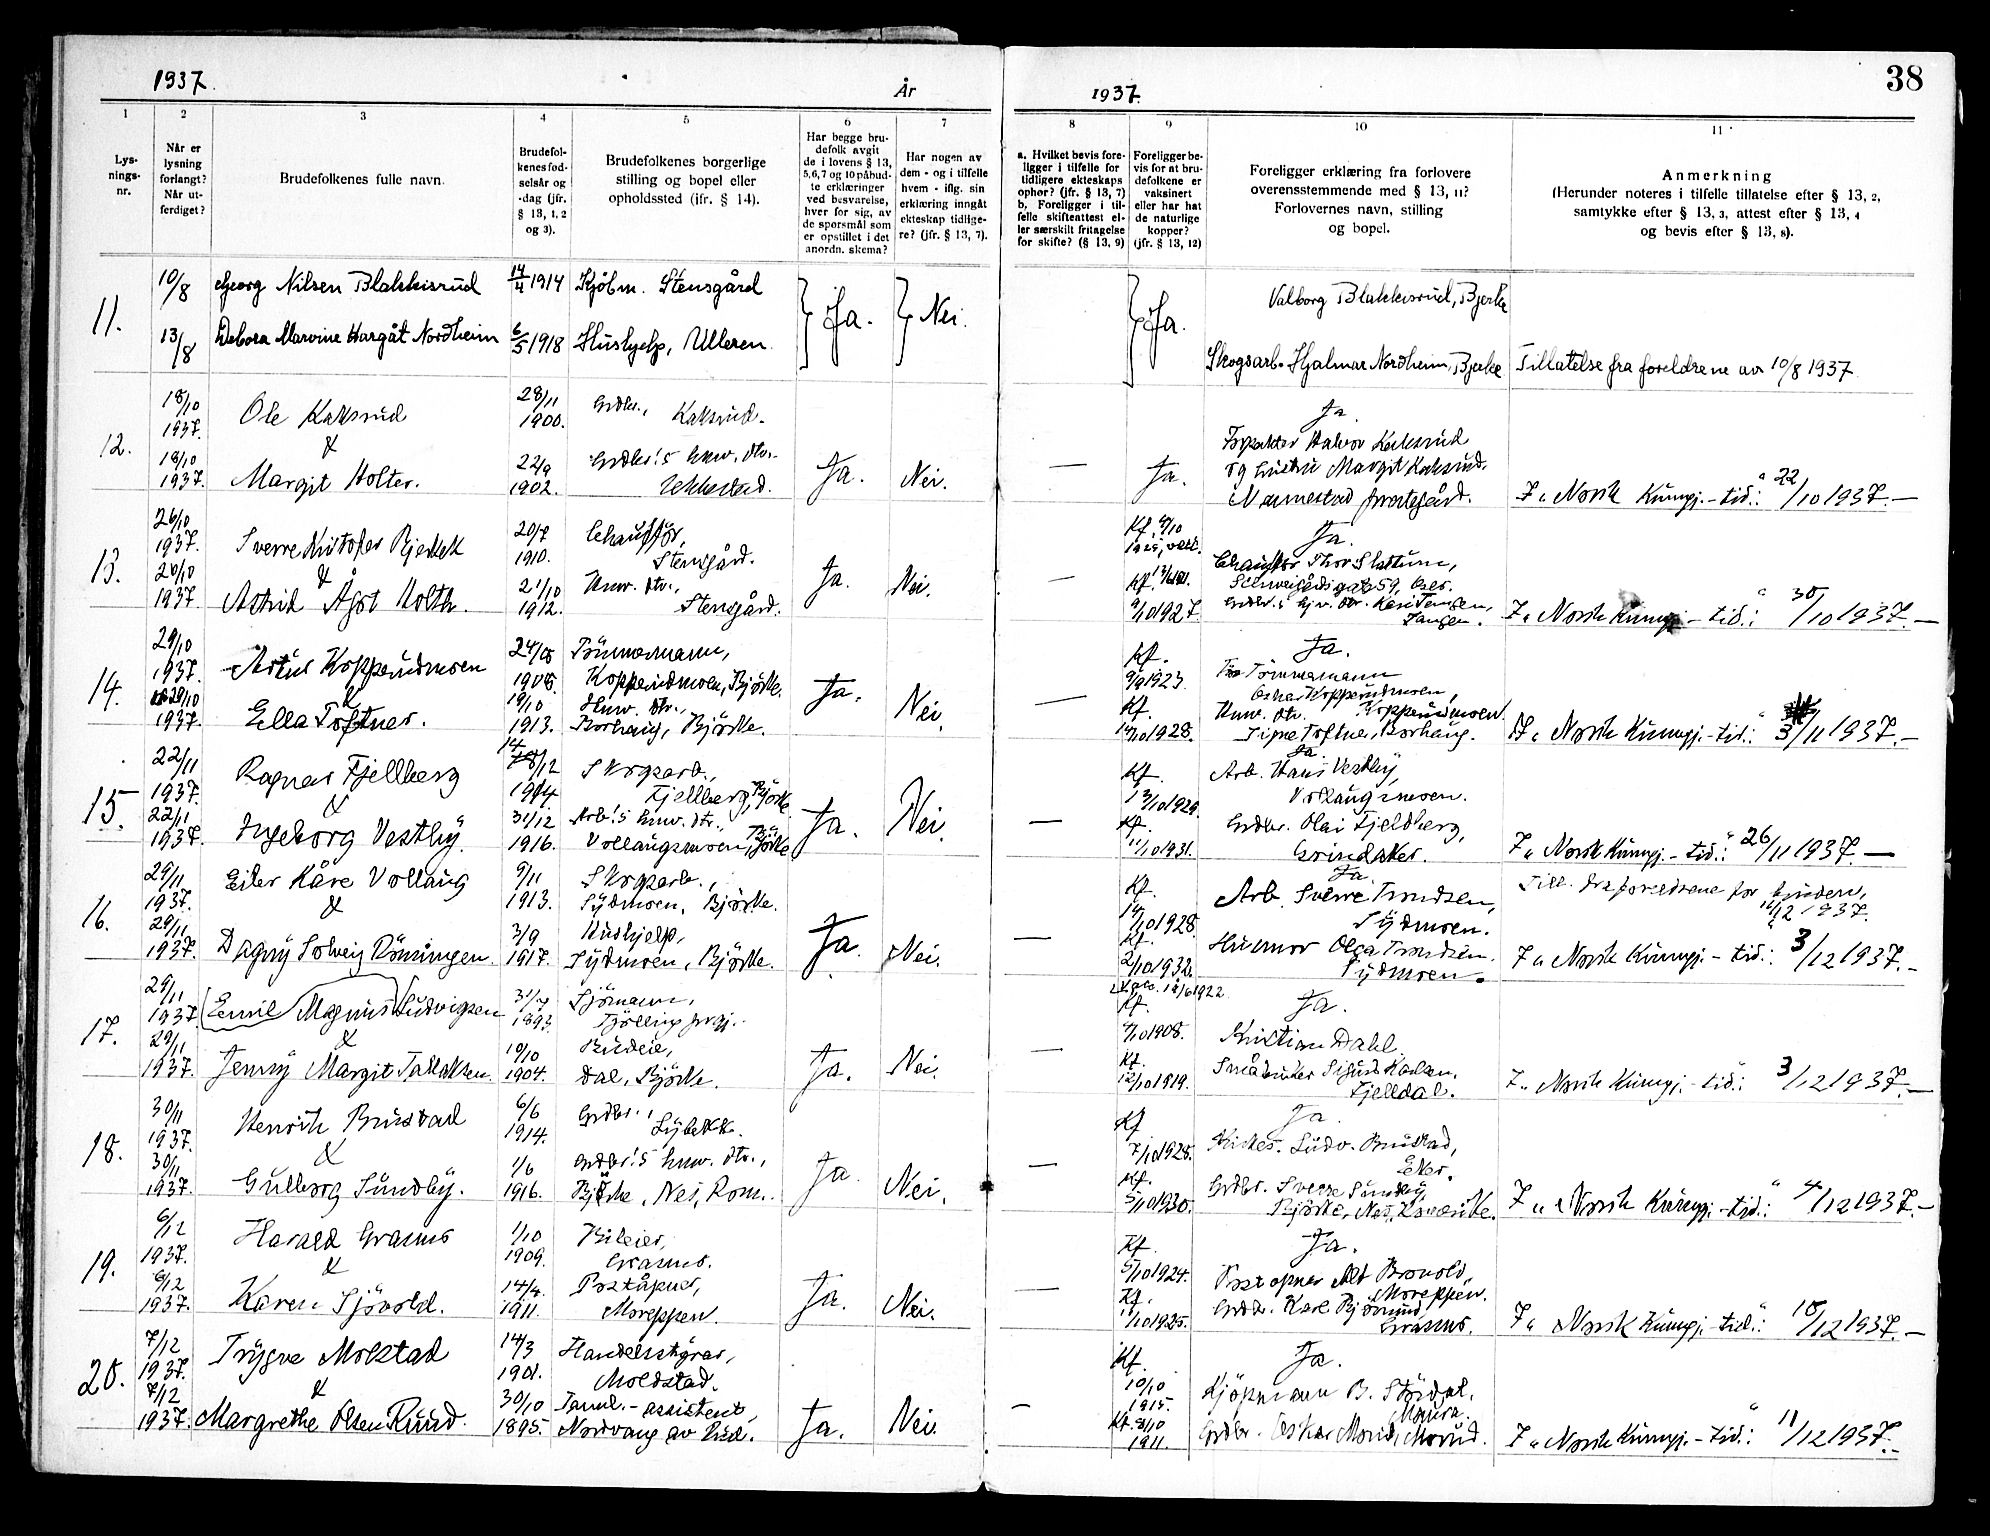 1937.
År
1937.
38
1
2
3
4
5
6
7
8
9
10
11
Lys-
nings-
nr.
Når er
lysning
forlangt?
Når ut-
ferdiget?
Brudefolkenes fulle navn.
Brudefol-
kenes fød-
selsår og
-dag (jfr.
§ 13, 1, 2
og 3).
Brudefolkenes borgerlige
stilling og bopel eller
opholdssted (jfr. § 14).
Har begge bru-
defolk avgit
de i lovens § 13,
5,6,7 og 10 påbud-
te erklæringer
ved besvarelse,
hver for sig, av
de spørsmål som
er opstillet i det
anordn. skema?
Har nogen av
dem - og i tilfelle
hvem - iflg. sin
erklæring inngåt
ekteskap tidlige-
re? (jfr. § 13, 7).
a. Hvilket bevis fore-
ligger i tilfelle for
tidligere ekteskaps
ophør? (jfr. § 13, 7)
b. Foreligger i til-
felle skifteattest el-
ler særskilt fritagelse
for skifte? (§ 13, 9)
Foreligger be-
vis for at bru-
defolkene er
vaksinert
eller har hat
de naturlige
kopper?
(jfr. § 13, 12)
Foreligger erklæring fra forlovere
overensstemmende med § 13, 11?
Forlovernes navn, stilling
og bopel.
Anmerkning
(Herunder noteres i tilfelle tillatelse efter § 13, 2,
samtykke efter § 13, 3, attest efter § 13, 4
og bevis efter § 13, 8).
11.
10/8
Georg Nilsen Blakkisrud
14/4 1914
Kjøbm. Stensgård
Ja.
Nei.
Ja.
Valborg Blakkisrud, Bjerke
13/8
Debora Marvine Hargåt Nordheim
6/5 1918
Hushjelp, Ulleren.
Skogsarb. Hjalmar Nordheim, Bjerke
Tillatelse fra foreldrene av 10/8 1937.
12.
18/10
1937.
Ole Kaksrud
&
28/11
1900.
Grdbr., Kaksrud.
18/10
1937.
Margit Holter.
22/9
1902.
Grdbr.'s hmv. dtr.
Ja.
Nei.
—
Ja.
Ja
Halvor Kaksrud
og hustru Margit Kaksrud.
Norsk Kunngj.-tid.: 22/10 1937.—
13.
26/10
1937.
&
20/7
1910.
Chauffør,
Stensgård.
26/10
1937
Astrid Ågot Holth.
21/10
1912.
Hmv. dtr.,
Stensgård.
Ja.
Nei.
—
Kf.
9/10 1927.
Ja.
Chauffør Thor Slattum,
Norsk Kunngj.-tid.: 30/10 1937.—
14.
29/10
1937.
Koppendmoen
&
1908.
Tömmermann,
Koppendmoen, Björke.
29/10
1937.
Ella Toftner.
19/10
1913.
Hmv. dtr.,
Borhaug, Björke.
Ja.
Nei.
—
Kf.
9/9 1923.
Kf.
14/10 1928.
Ja.
Tömmermann
Koppendmoen,
Hmv. dtr.
Toftner, Borhaug.
Norsk Kunngj.-tid.: 3/11 1937.—
15.
22/11
1937.
Ragnar Fjellberg
&
1914.
Skogsarb.,
Fjellberg, Björke.
22/11
1937.
Ingeborg Vestby.
31/12
1916.
Arb.'s hmv. dtr.,
Vollaugsmoen, Björke
Ja.
Nei.
—
Kf.
13/10 1929.
Kf.
11/10 1931.
Ja
Arb. Hans Vestby,
Vollaugsmoen.
Grdbr. Olai Fjeldberg,
Grindaker.
Norsk Kunngj.-tid.: 26/11 1937.—
16.
29/11
1937.
Kåre Vollaug
&
9/11
1913.
Skogsarb.,
Sydmoen, Björke.
29/11
1937.
Dagny Solveig Röningen.
3/9
1917.
Hushjelp,
Sydmoen, Björke.
Ja.
Nei.
—
Kf.
14/10 1928.
Kf.
2/10 1932.
Ja
Arb. Sverre Trondsen,
Sydmoen.
Husmor Olga Trondsen.
Sydmoen.
Till. fra foreldrene for bruden,
12 1937.
Norsk Kunngj.-tid.: 3/12 1937.—
17.
29/11
1937
Emil Magnus Ludvigsen
&
1893.
Sjömann,
Tjölling
29/11
1937.
Jenny Margit Tallaksen.
19/10
1904.
Budeie,
Dal, Björke.
Ja.
Nei.
—
1922
Kf.
4/10 1908.
Kf.
12/10 1919.
Ja.
Kristian Dahl
Småbruker Karlsen.
Fjelldal.
Norsk Kunngj.-tid.: 3/12 1937.—
18.
30/11
1937.
Henrik Brustad
&
6/6
1914.
Grdbr.,
Lybekk.
30/11
1937.
Gulborg Sundby.
1/6
1916.
Grdbr.'s hmv. dtr.,
Björke, Nes, Rom.
Ja.
Nei.
—
Kf
7/10 1928.
Kf.
5/10 1930.
Ja.
Ludv. Brustad,
Grdbr. Sverre Sundby,
Björke, Nes,
Norsk Kunngj.-tid.: 4/12 1937.—
19.
6/12
1937.
Harald Grasmo
&
1/10
1909.
Bileier,
Grasmo.
6/12
1937.
Karen Sjövold.
14/4
1911.
Poståpner,
Moreppen.
Ja.
Nei.
—
Kf.
5/10 1924.
Kf.
11/10 1925.
Ja.
Moreppen.
Grdbr. Karl
Grasmo.
Norsk Kunngj.-tid.: 10/12 1937.—
20.
7/12
1937.
Trygve Molstad
&
14/3
1901.
Handelsstyrer,
Moldstad.
7/12
1937.
Margrethe Olsen Ruud.
30/10
1895.
Tannl.-assistent,
Nordvang av Rud.
Ja.
Nei.
—
Kf.
10/10
1915.
Kf. 8/10
1911.
Ja.
Kjöpmann B. Stördal,
Moura.
Grdbr. Oskar Morud, Morud.
Norsk Kunngj.-tid.: 11/12 1937.—